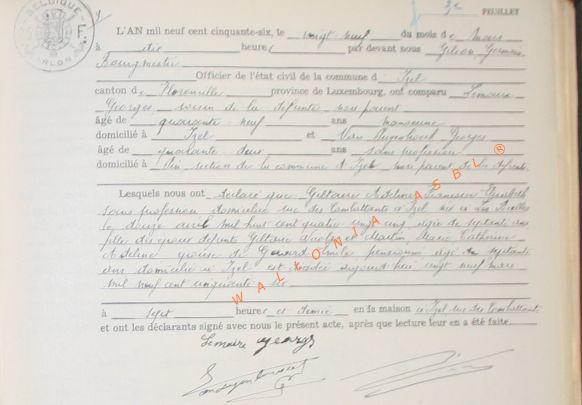 BELGIQUE
ARLON
3e FEUILLET
L'AN mil neuf cent cinquante-six, le vingt neuf du mois de Mars
à dix heures par devant nous Gilson Germain
Bourgmestre
Officier de l'état civil de la commune d'Izel
canton de Florenville province de Luxembourg, ont comparu Lemaire
Georges voisin de la défunte non parent
âgé de quarante neuf ans manoeuvre
domicilié à Izel et Georges
âgé de quarante deux ans sans profession
domicilié à section de la commune d'Izel non parent de la défunte
Lesquels nous ont déclaré que Giltaire Adeline Francisca Elisabeth
sans profession domiciliée rue des Combattants à Izel née à Les Bulles
le avril mil huit cent quatre vingt âgée de septante ans
fille des époux défunts Giltaire et Martin Marie Catherine
Adeline épouse de Emile pensionné âgé de septante
ans domicilié à Izel est décédée aujourd'hui vingt neuf mars
mil neuf cent cinquante six
à sept heures et demie en la maison à Izel rue des Combattants
et ont les déclarants signé avec nous le présent acte, après que lecture leur en a été faite.
Lemaire Georges
WALLONIA ASBL ®